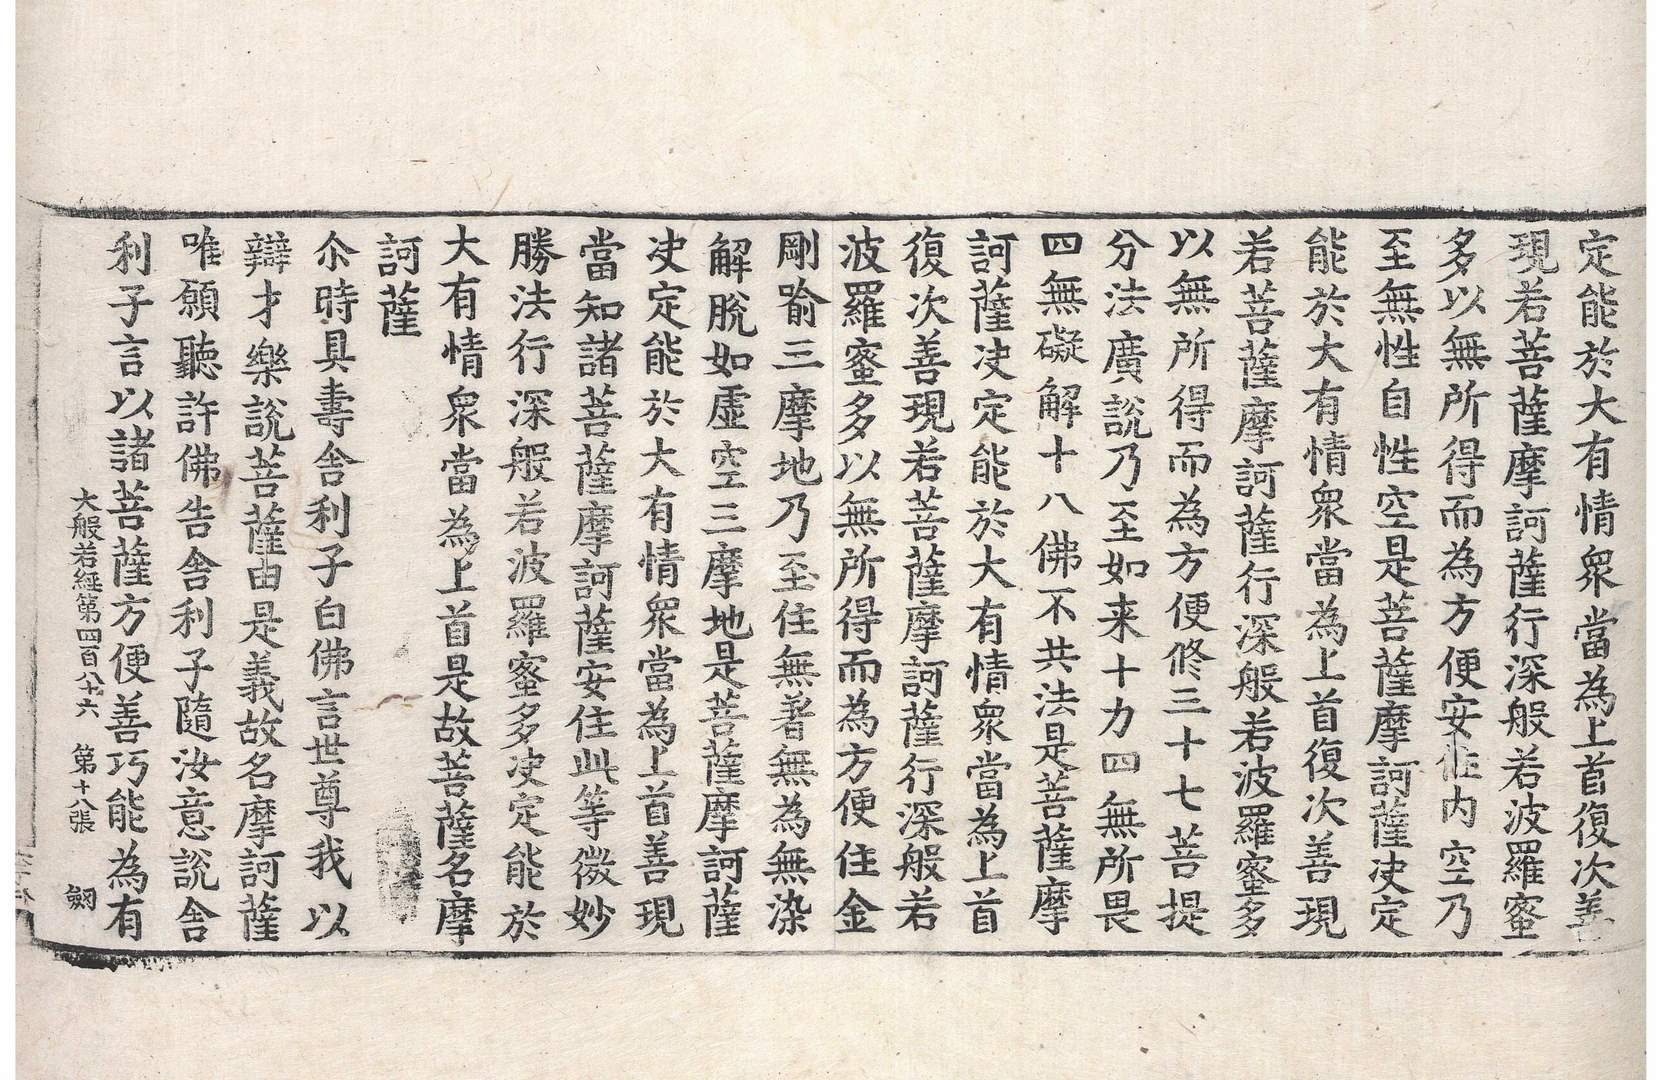 定能於大有情衆當為上首復次善
現若菩薩摩訶薩行深般若波羅蜜
多以無所得而為方便安住內空乃
至無性自性空是菩薩摩訶薩决定
能於大有情衆當為上首復次善現
若菩薩摩訶薩行深般若波羅蜜多
以無所得而為方便修三十七菩提
分法廣說乃至如来十力四無所畏
四無礙解十八佛不共法是菩薩摩
訶薩决定能於大有情衆當為上首
復次善現若菩薩摩訶薩行深般若
波羅蜜多以無所得而為方便住金
剛喻三摩地乃至住無著無為無染
解脫如虛空三摩地是菩薩摩訶薩
决定能於大有情衆當為上首善現
當知諸菩薩摩訶薩安住此等微妙
勝法行深般若波羅蜜多决定能於
大有情衆當為上首是故菩薩名摩
訶薩
尒時具壽舍利子白佛言世尊我以
辯才樂說菩薩由是義故名摩訶薩
唯願聽許佛告舍利子隨汝意說舍
利子言以諸菩薩方便善巧能為有
大般若經第四百八十六 第十八張 劒